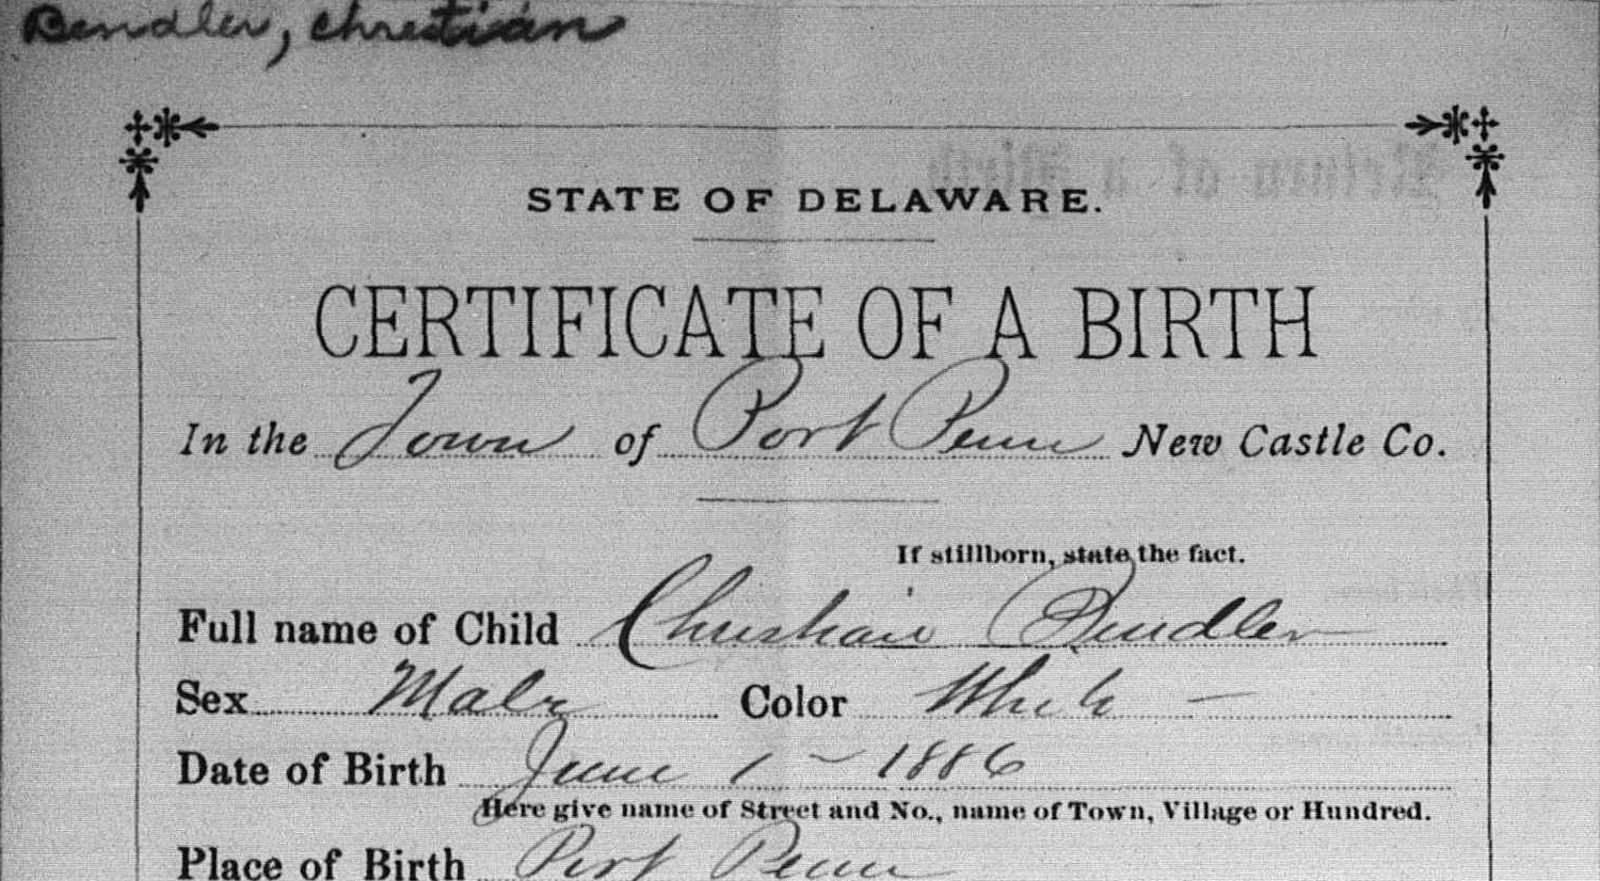 Bendler, Chrestian
STATE OF DELAWARE.
CERTIFICATE OF A BIRTH
In the Town of Port Penn New Castle Co.
If stillborn, state the fact.
Full name of Child Christian Bendler
Sex Male Color White —
Date of Birth June 1 – 1886
Here give name of Street and No., name of Town, Village or Hundred.
Place of Birth Port Penn